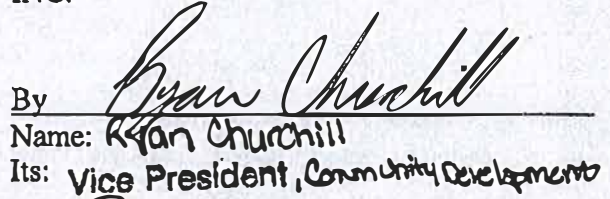 By Ryan Churchill
Name: Ryan Churchill
Its: Vice President, Community Development